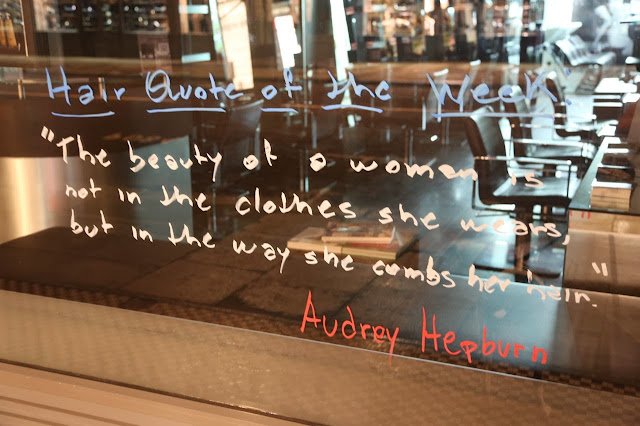 Hair Quote of the Week.
"The beauty of a women is
not in the clothes she wears,
but in the way she combs her hair."
Audrey Hepburn